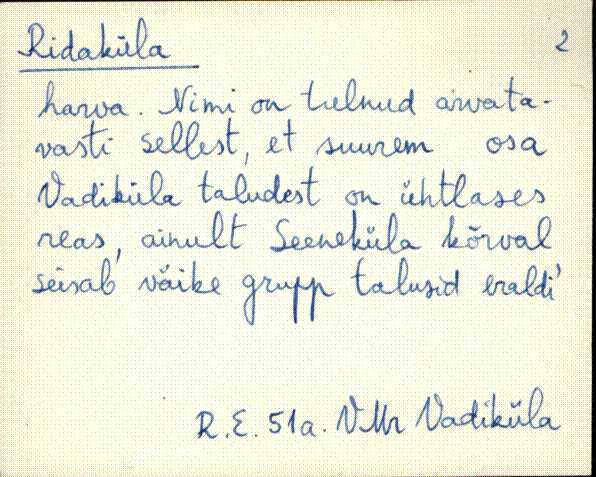 Ridaküla 2
harva. Nimi on tulnud arvata-
vasti sellest, et suurem osa
Vadiküla taludest on ühtlases
reas, ainult Seeneküla kõrval
seisab väike grupp talusid eraldi
R.E. 51a. VMr Vadiküla